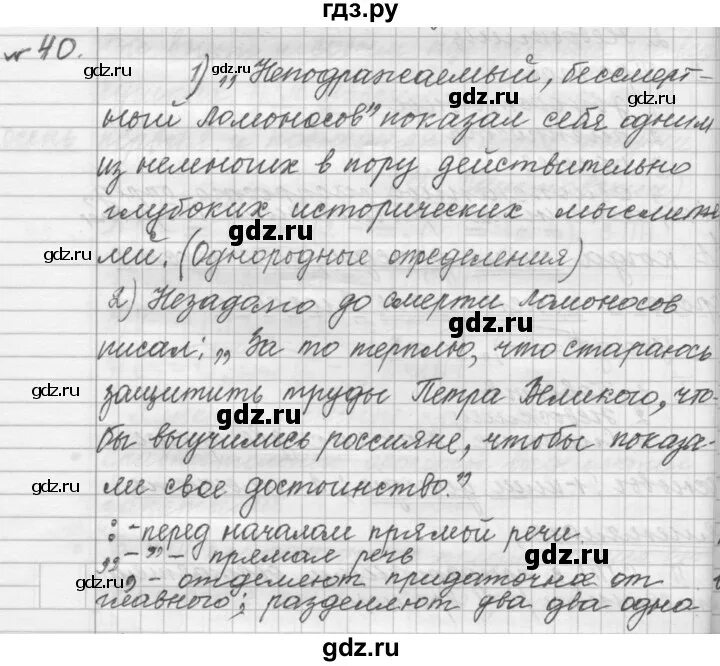 гдз.ру
№ 40.
1) „Неподражаемый, бессмерт-
ный Ломоносов" показал себя одним
из немногих в пору действительно
глубоких исторических мыслите-
лей. (Однородные определения)
2) Незадолго до смерти Ломоносов
писал: „За то терплю, что стараюсь
защитить труды Петра Великого, что-
бы выучились россияне, чтобы показа-
ли свое достоинство."
: - перед началом прямой речи
„ - " - прямая речь
, - отделяют придаточное от
главного; разделяют два два одно
gdz.ru
gdz.ru
gdz.ru
gdz.ru
gdz.ru
gdz.ru
gdz.ru
gdz.ru
gdz.ru
gdz.ru
gdz.ru
gdz.ru
gdz.ru